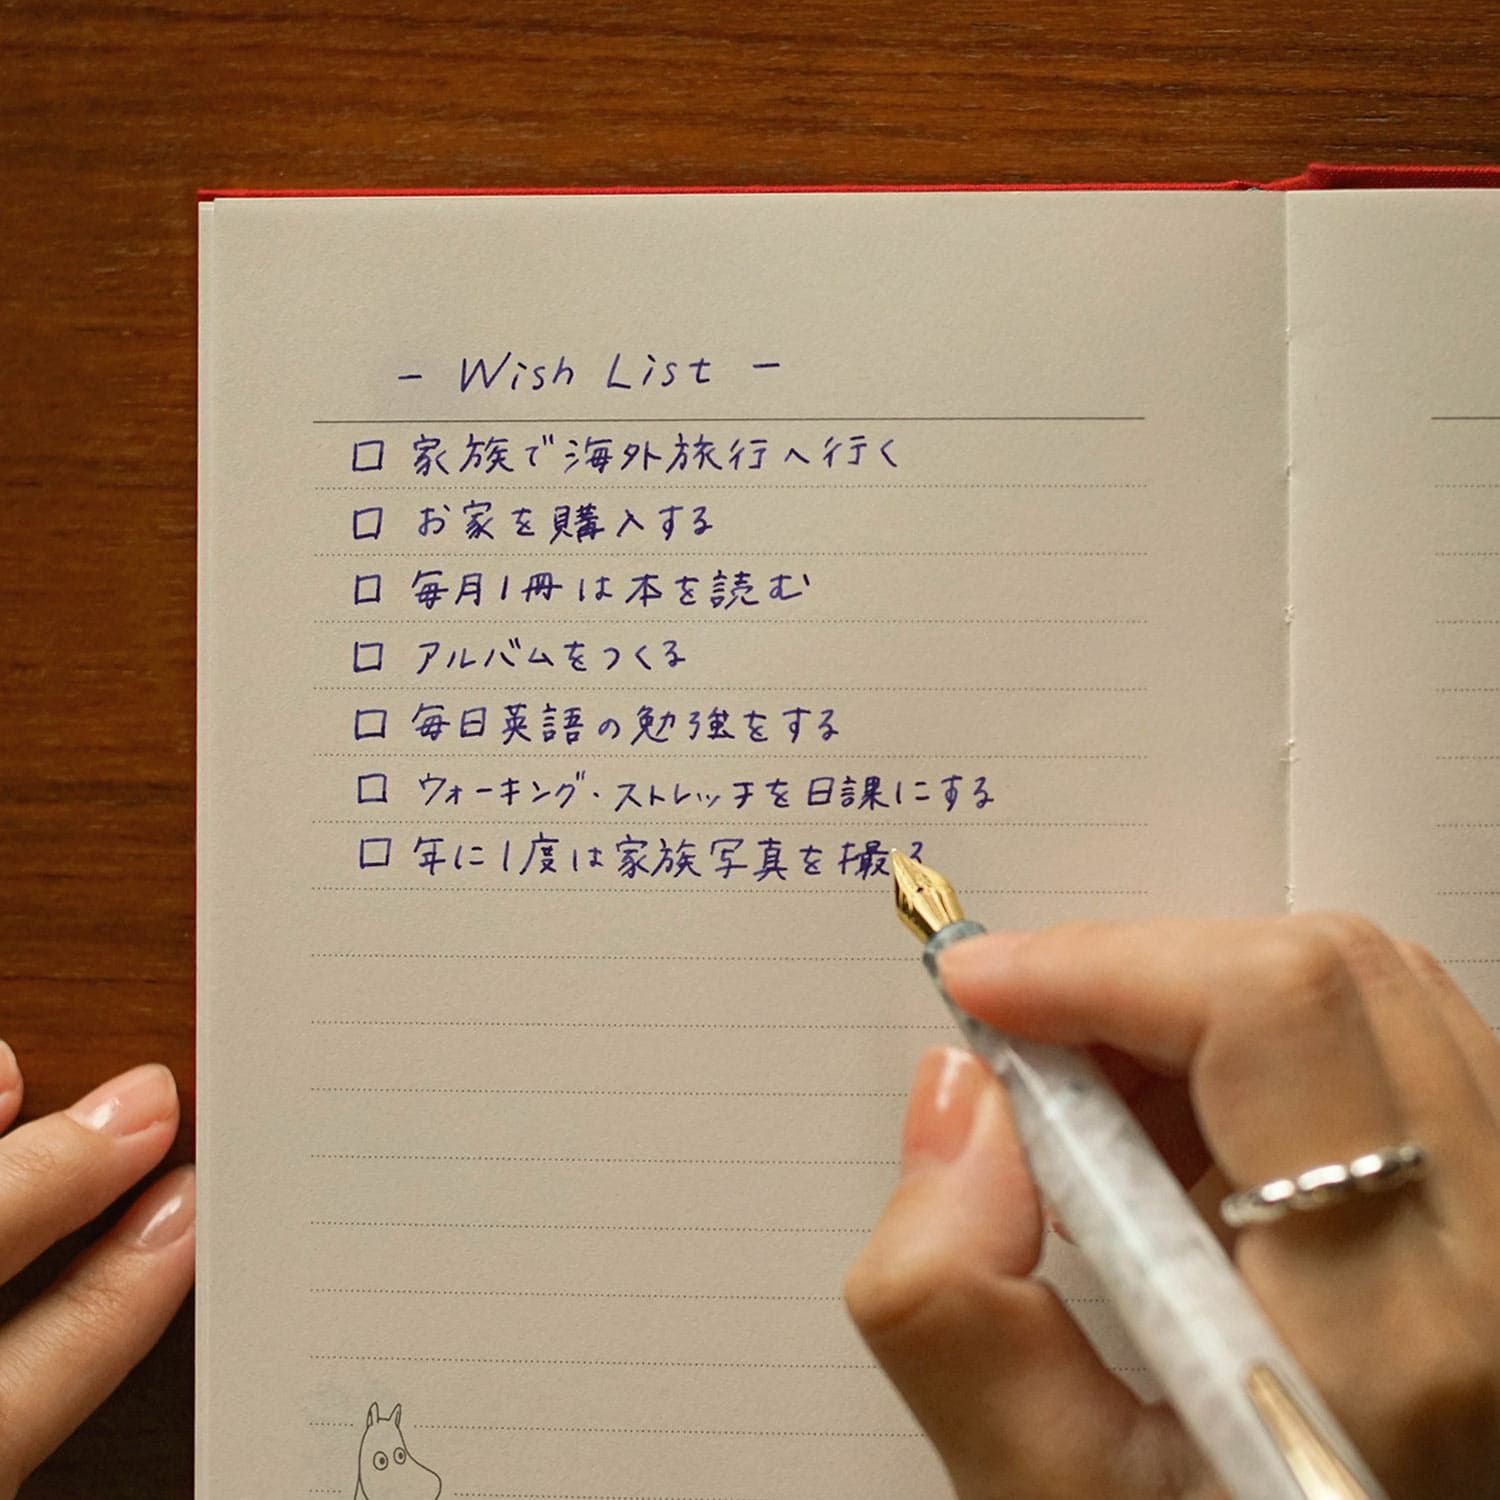 - Wish List -
□ 家族で海外旅行へ行く
□ お家を購入する
□ 毎月1冊は本を読む
□ アルバムをつくる
□ 毎日英語の勉強をする
□ ウォーキング・ストレッチを日課にする
□ 年に1度は家族写真を撮る